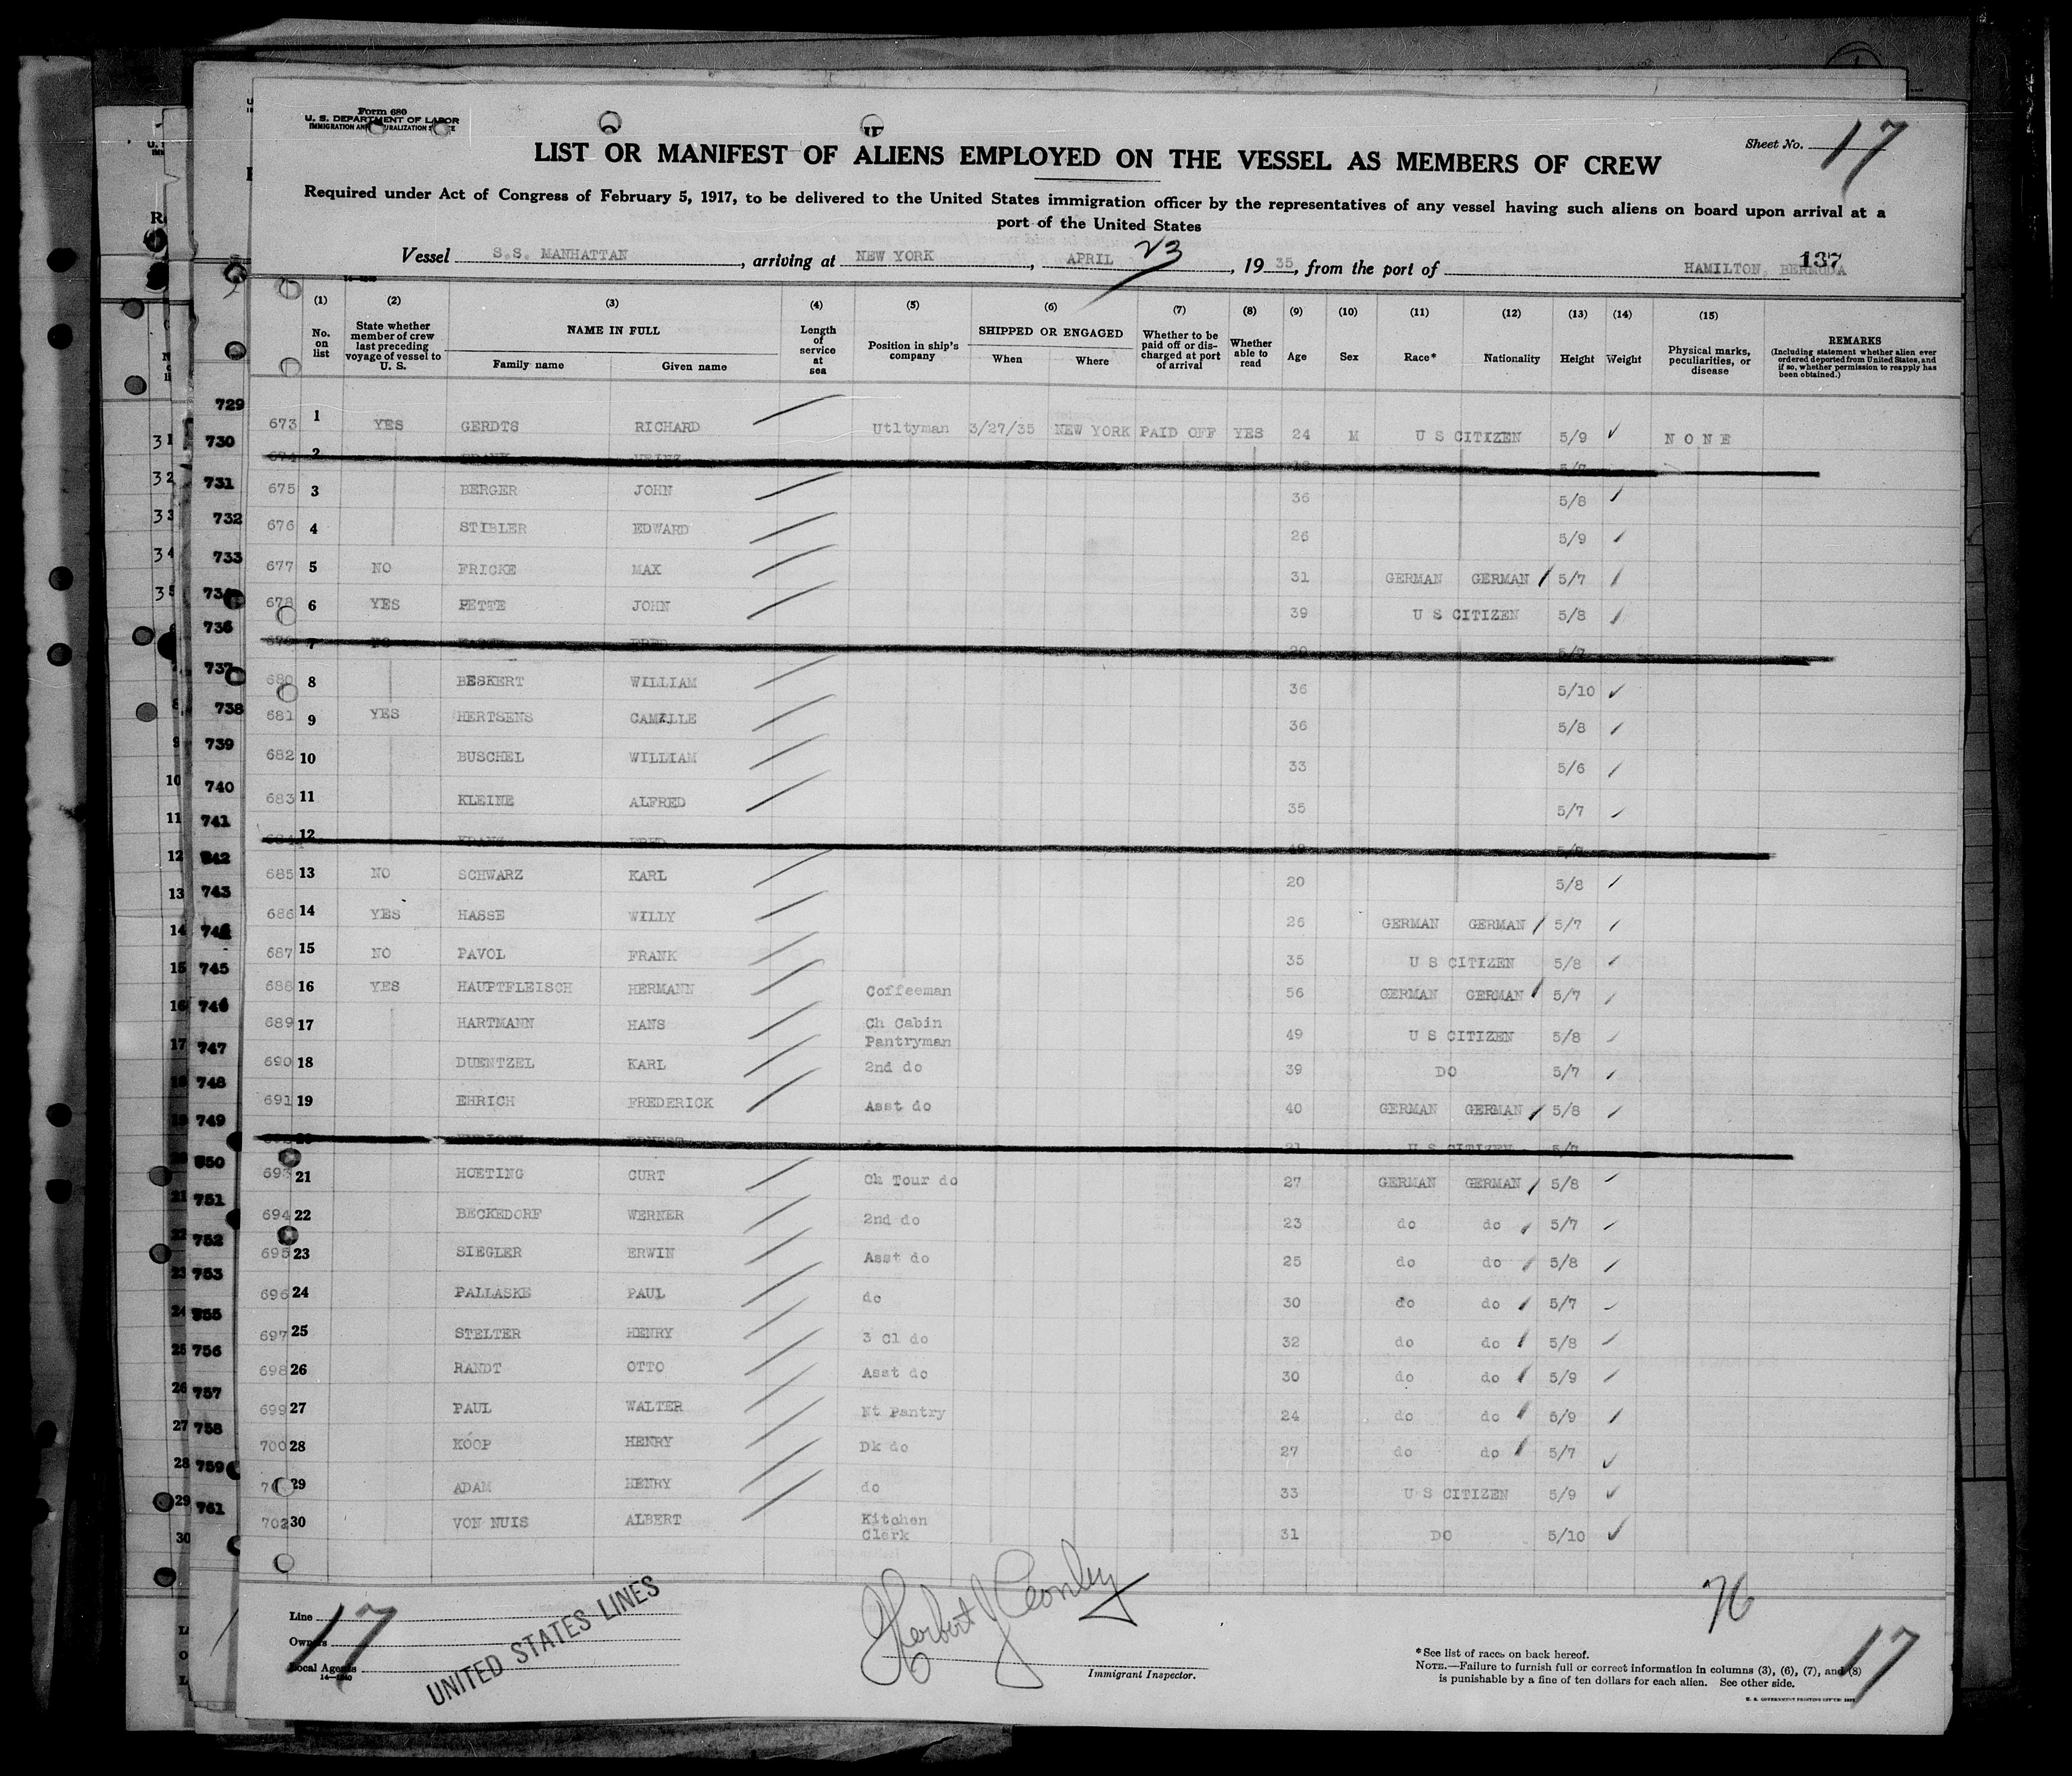 Form 680
U. S. DEPARTMENT OF LABOR
Sheet No. 17
LIST OR MANIFEST OF ALIENS EMPLOYED ON THE VESSEL AS MEMBERS OF CREW
Required under Act of Congress of February 5, 1917, to be delivered to the United States immigration officer by the representatives of any vessel having such aliens on board upon arrival at a
port of the United States
Vessel S.S. MANHATTAN, arriving at NEW YORK, APRIL 23, 1935, from the port of HAMILTON, BERMUDA 137
(1) (2) (3) (4) (5) (6) (7) (8) (9) (10) (11) (12) (13) (14) (15)
No. on list
State whether member of crew last preceding voyage of vessel to U. S.
NAME IN FULL
Family name Given name
Length of service at sea
Position in ship's company
SHIPPED OR ENGAGED
When Where
Whether to be paid off or discharged at port of arrival
Whether able to read
Age Sex Race* Nationality Height Weight
Physical marks, peculiarities, or disease
REMARKS
(Including statement whether alien ever ordered deported from United States, and if so, whether permission to reapply has been obtained.)
729
673 1 YES GERDTS RICHARD Utltyman 3/27/35 NEW YORK PAID OFF YES 24 M U S CITIZEN 5/9 NONE
730
2
731
675 3 BERGER JOHN 36 5/8
732
676 4 STIBLER EDWARD 26 5/9
733
677 5 NO FRICKE MAX 31 GERMAN GERMAN 5/7
678 6 YES PETTE JOHN 39 U S CITIZEN 5/8
736
7
737
680 8 BESKERT WILLIAM 36 5/10
738
681 9 YES HERTSENS CAMILLE 36 5/8
739
682 10 BUSCHEL WILLIAM 33 5/6
740
683 11 KLEINE ALFRED 35 5/7
741
12
742
685 13 NO SCHWARZ KARL 20 5/8
743
686 14 YES HASSE WILLY 26 GERMAN GERMAN 5/7
687 15 NO PAVOL FRANK 35 U S CITIZEN 5/8
745
688 16 YES HAUPTFLEISCH HERMANN Coffeeman 56 GERMAN GERMAN 5/7
746
689 17 HARTMANN HANS Ch Cabin Pantryman 49 U S CITIZEN 5/8
747
690 18 DUENTZEL KARL 2nd do 39 DO 5/7
748
691 19 EHRICH FREDERICK Asst do 40 GERMAN GERMAN 5/8
749
20 U S CITIZEN
750
693 21 HOETING CURT Ch Tour do 27 GERMAN GERMAN 5/8
751
694 22 BECKEDORF WERNER 2nd do 23 do do 5/7
752
695 23 SIEGLER ERWIN Asst do 25 do do 5/8
753
696 24 PALLASKE PAUL do 30 do do 5/7
755
697 25 STELTER HENRY 3 Cl do 32 do do 5/8
756
698 26 RANDT OTTO Asst do 30 do do 5/9
757
699 27 PAUL WALTER Nt Pantry 24 do do 5/9
758
700 28 KOOP HENRY Dk do 27 do do 5/7
759
29 ADAM HENRY do 33 U S CITIZEN 5/9
761
702 30 VON NUIS ALBERT Kitchen Clerk 31 DO 5/10
76
Line
Owners
Local Agents
17
UNITED STATES LINES
Immigrant Inspector.
*See list of races on back hereof.
NOTE.—Failure to furnish full or correct information in columns (3), (6), (7), and (8)
is punishable by a fine of ten dollars for each alien. See other side.
17